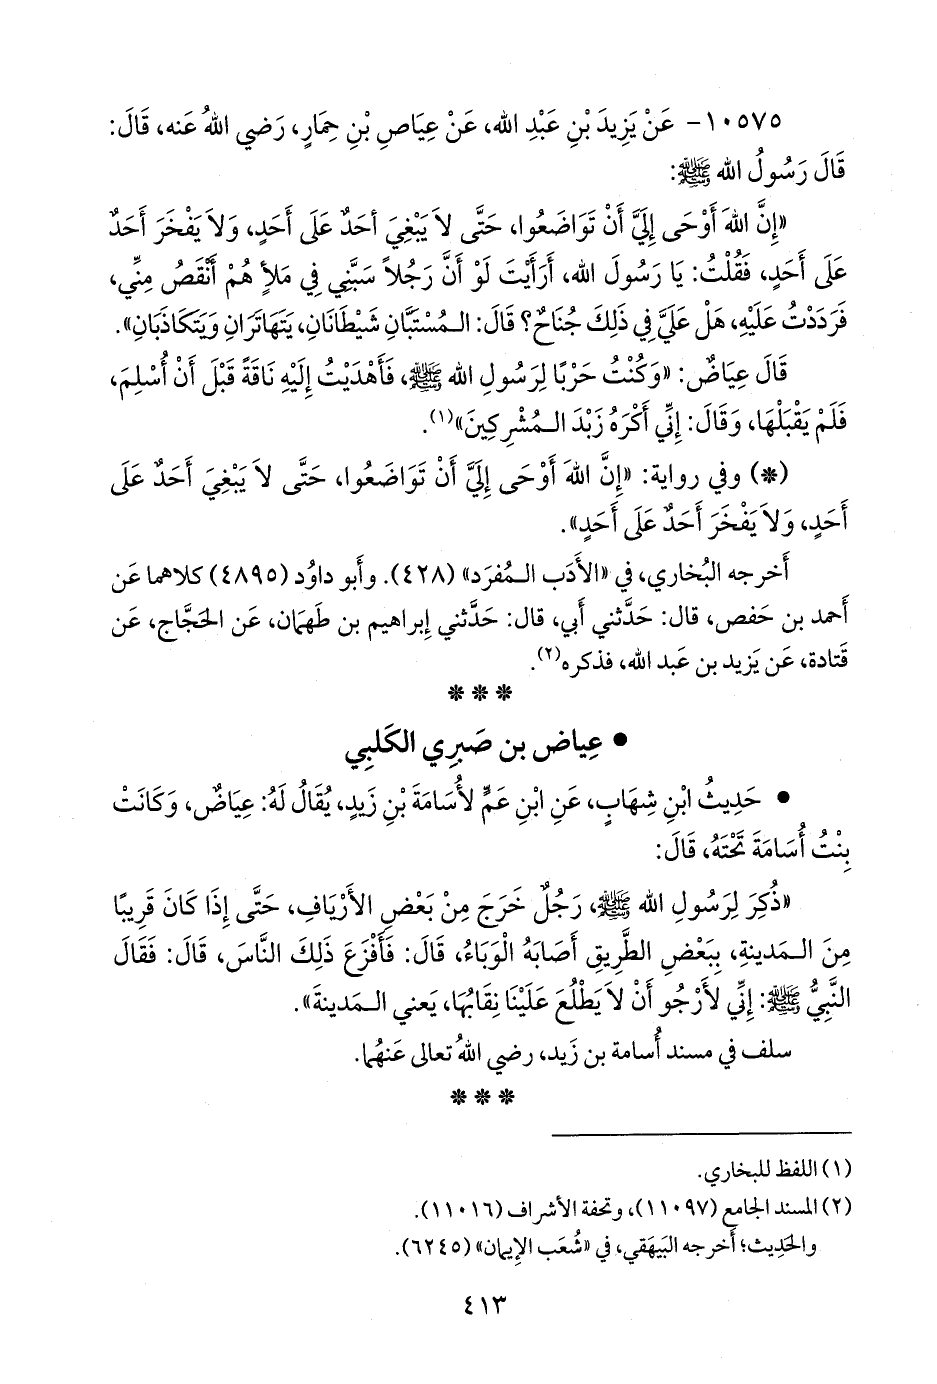 ١٠٥٧٥- عَنْ يَزِيدَ بْنِ عَبْدِ الله، عَنْ عِيَاضِ بْنِ حِمَارٍ، رَضي اللهُ عَنه، قَالَ:
قَالَ رَسُولُ الله ﷺ:
«إِنَّ اللهَ أَوْحَى إِلَيَّ أَنْ تَوَاضَعُوا، حَتَّى لاَ يَبْغِيَ أَحَدٌ عَلَى أَحَدٍ، وَلاَ يَفْخَرَ أَحَدٌ
عَلَى أَحَدٍ، فَقُلْتُ: يَا رَسُولَ الله، أَرَأَيْتَ لَوْ أَنَّ رَجُلاً سَبَّنِي فِي مَلأٍ هُمْ أَنْقَصُ مِنِّي،
فَرَدَدْتُ عَلَيْهِ، هَلْ عَلَيَّ فِي ذَلِكَ جُنَاحٌ؟ قَالَ: الـمُسْتَبَّانِ شَيْطَانَانِ، يَتَهَاتَرَانِ وَيَتَكَاذَبَانِ».
قَالَ عِيَاضٌ: «وَكُنْتُ حَرْبًا لِرَسُولِ الله ﷺ، فَأَهْدَيْتُ إِلَيْهِ نَاقَةً قَبْلَ أَنْ أُسْلِمَ،
فَلَمْ يَقْبَلْهَا، وَقَالَ: إِنِّي أَكْرَهُ زَبْدَ الـمُشْرِكِينَ»(١).
(*) وفي رواية: «إِنَّ اللهَ أَوْحَى إِلَيَّ أَنْ تَوَاضَعُوا، حَتَّى لاَ يَبْغِيَ أَحَدٌ عَلَى
أَحَدٍ، وَلاَ يَفْخَرَ أَحَدٌ عَلَى أَحَدٍ».
أَخرجه البُخاري، في «الأَدَب الـمُفرَد» (٤٢٨). وأَبو داوُد (٤٨٩٥) كلاهما عَن
أَحمد بن حَفص، قال: حَدَّثني أَبي، قال: حَدَّثني إِبراهيم بن طَهمان، عَن الحَجَّاج، عَن
قَتادة، عَن يَزيد بن عَبد الله، فذكره(٢).
* * *
• عِياض بن صَبري الكَلبِي
• حَدِيثُ ابْنِ شِهَابٍ، عَنِ ابْنِ عَمٍّ لأُسَامَةَ بْنِ زَيدٍ، يُقَالُ لَهُ: عِيَاضٌ، وَكَانَتْ
بِنْتُ أُسَامَةَ تَحْتَهُ، قَالَ:
«ذُكِرَ لِرَسُولِ الله ﷺ، رَجُلٌ خَرَجَ مِنْ بَعْضِ الأَرْيَافِ، حَتَّى إِذَا كَانَ قَرِيبًا
مِنَ الـمَدينةِ، بِبَعْضِ الطَّرِيقِ أَصَابَهُ الْوَبَاءُ، قَالَ: فَأَفْزَعَ ذَلِكَ النَّاسَ، قَالَ: فَقَالَ
النَّبِيُّ ﷺ: إِنِّي لأَرْجُو أَنْ لاَ يَطْلُعَ عَلَيْنَا نِقَابُهَا، يَعني الـمَدينةَ».
سلف في مسند أُسامة بن زَيد، رضي اللهُ تعالى عَنهُما.
* * *
(١) اللفظ للبخاري.
(٢) المسند الجامع (١١٠٩٧)، وتحفة الأشراف (١١٠١٦).
والحَدِيث؛ أَخرجه البَيهَقي، في «شُعَب الإِيمان» (٦٢٤٥).
٤١٣